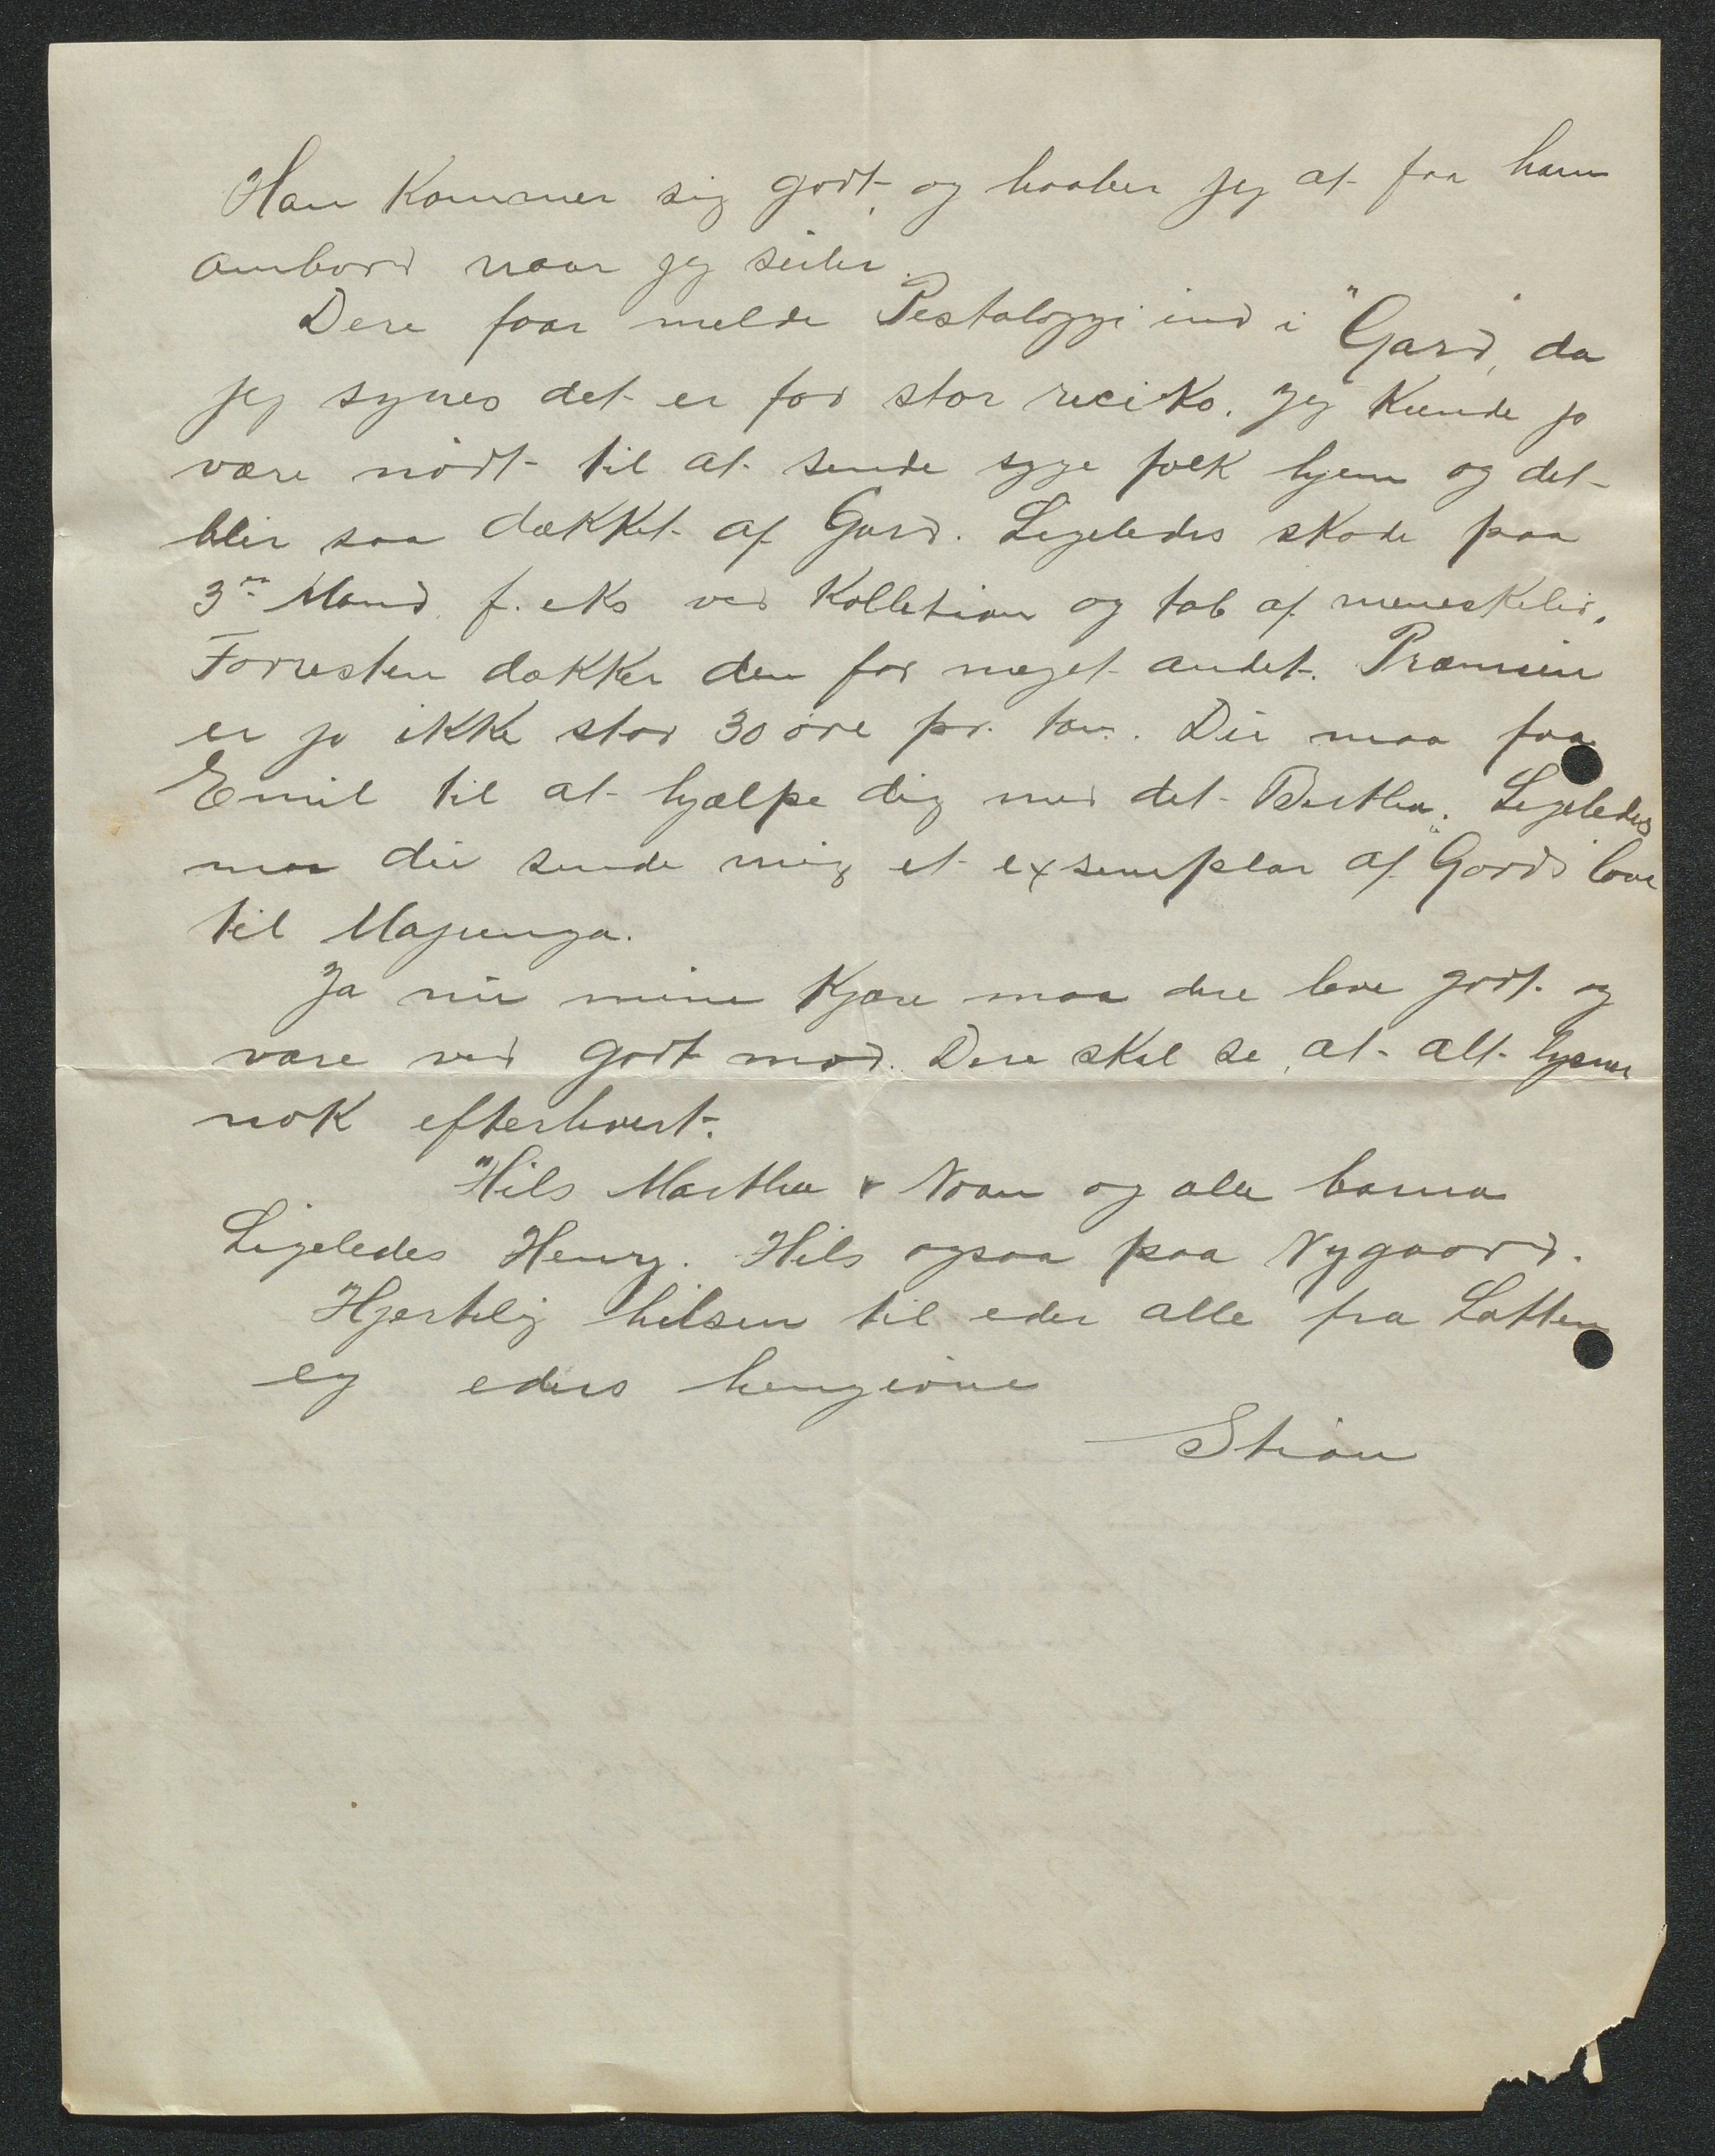 Han kommer sig godt, og haaber jeg at faa ham
ombord naar jeg seiler.
Dere faar melde Pestalozzi ind i "Gard", da
jeg synes det er for stor reciko. Jeg kunde jo
være nödt til at sende syge folk hjem og det
blir saa dækket af Gard. Ligeledes skade paa
3die Mand f. eks ved Kolletion og tab af meneskeliv.
Forresten dækker den for meget andet. Præmien
er jo ikke stor 30 öre pr. ton. Du maa faa
Emil til at hjælpe dig med det Berthea. Ligeledes
maa du sende mig et exsemplar af "Gards love
til Majunga.
Ja nu mine kjære maa dere leve godt og
være ved godt mod. Dere skal se, at alt lysner
nok efterhvert.
Hils Marthea & Noan og alle barna
Ligeledes Henry. Hils ogsaa paa Nygaard.
Hjertelig hilsen til eder alle fra Lotten
og eders hengivne
Stian